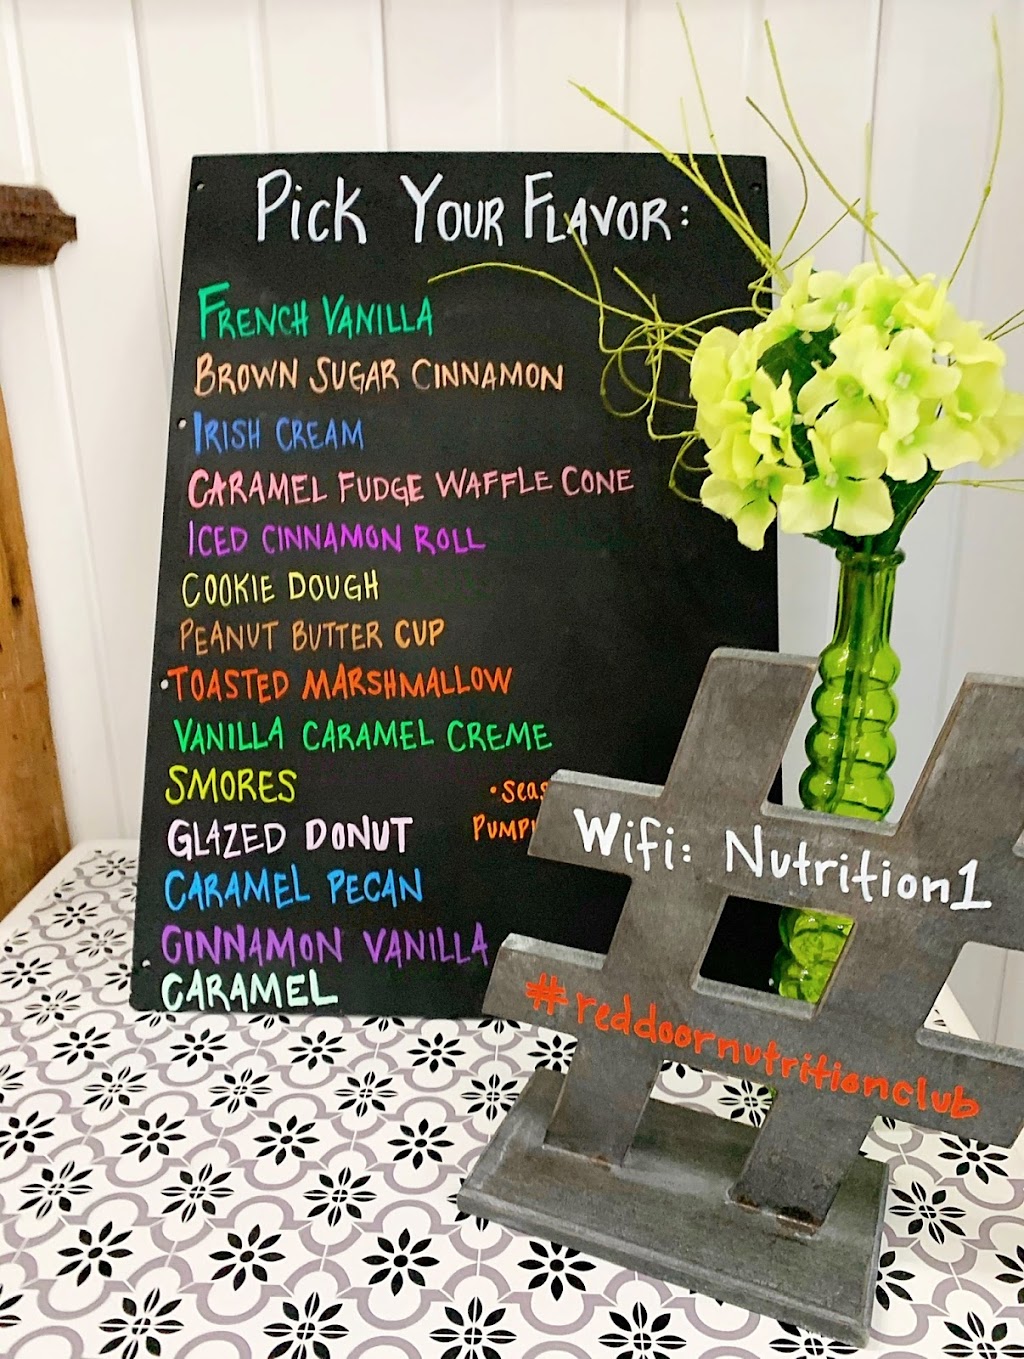 Pick Your Flavor:
French Vanilla
Brown Sugar Cinnamon
Irish Cream
Caramel Fudge Waffle Cone
Iced Cinnamon Roll
Cookie Dough
Peanut Butter Cup
Toasted Marshmallow
Vanilla Caramel Creme
Smores
Glazed Donut
Caramel Pecan
Cinnamon Vanilla
Caramel
Wifi: Nutrition1
#reddoornutritionclub